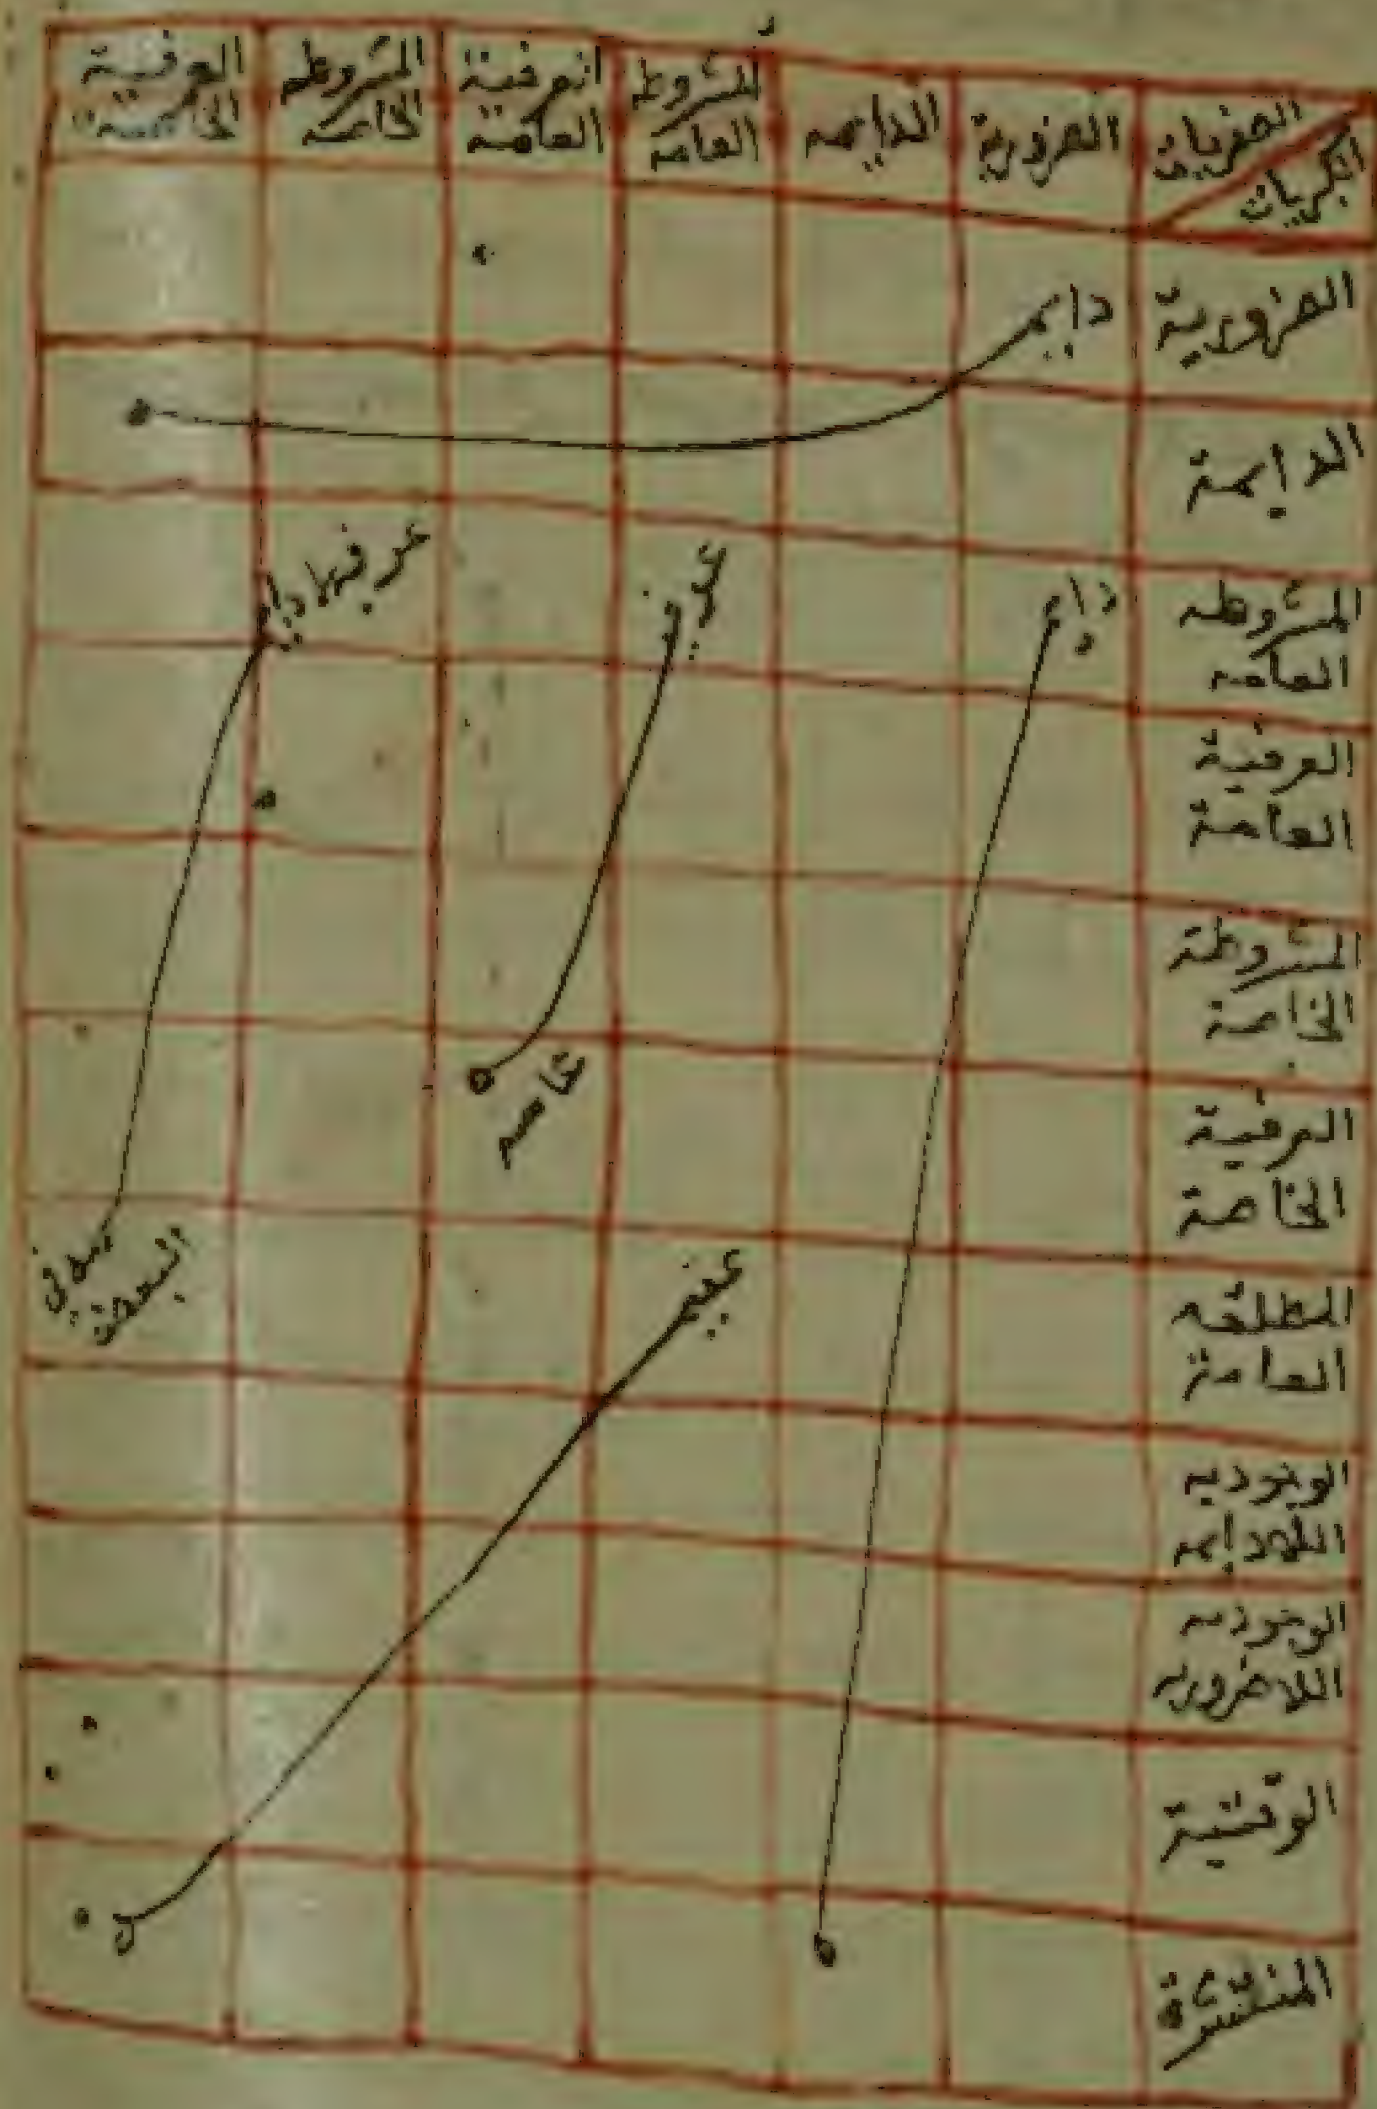 الصغريات
الكبريات
الضرورية
الدايمه
المشروطه
العامه
العرفية
العامة
المشروطه
الخاصه
العرفية
الخاصة
الضرورية
دايم
الدايمة
المشروطه
العامه
دايم
عرفي
عرفيه
العرفية
العامة
المشروطة
الخاصة
عامه
العرفية
الخاصة
المطلقه
العامة
في
البعض
الوجوديه
اللادايمه
الوجوديه
اللاضروريه
الوقتية
المنتشرة